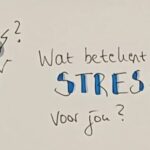 Wat betekent
STRES
voor jou?